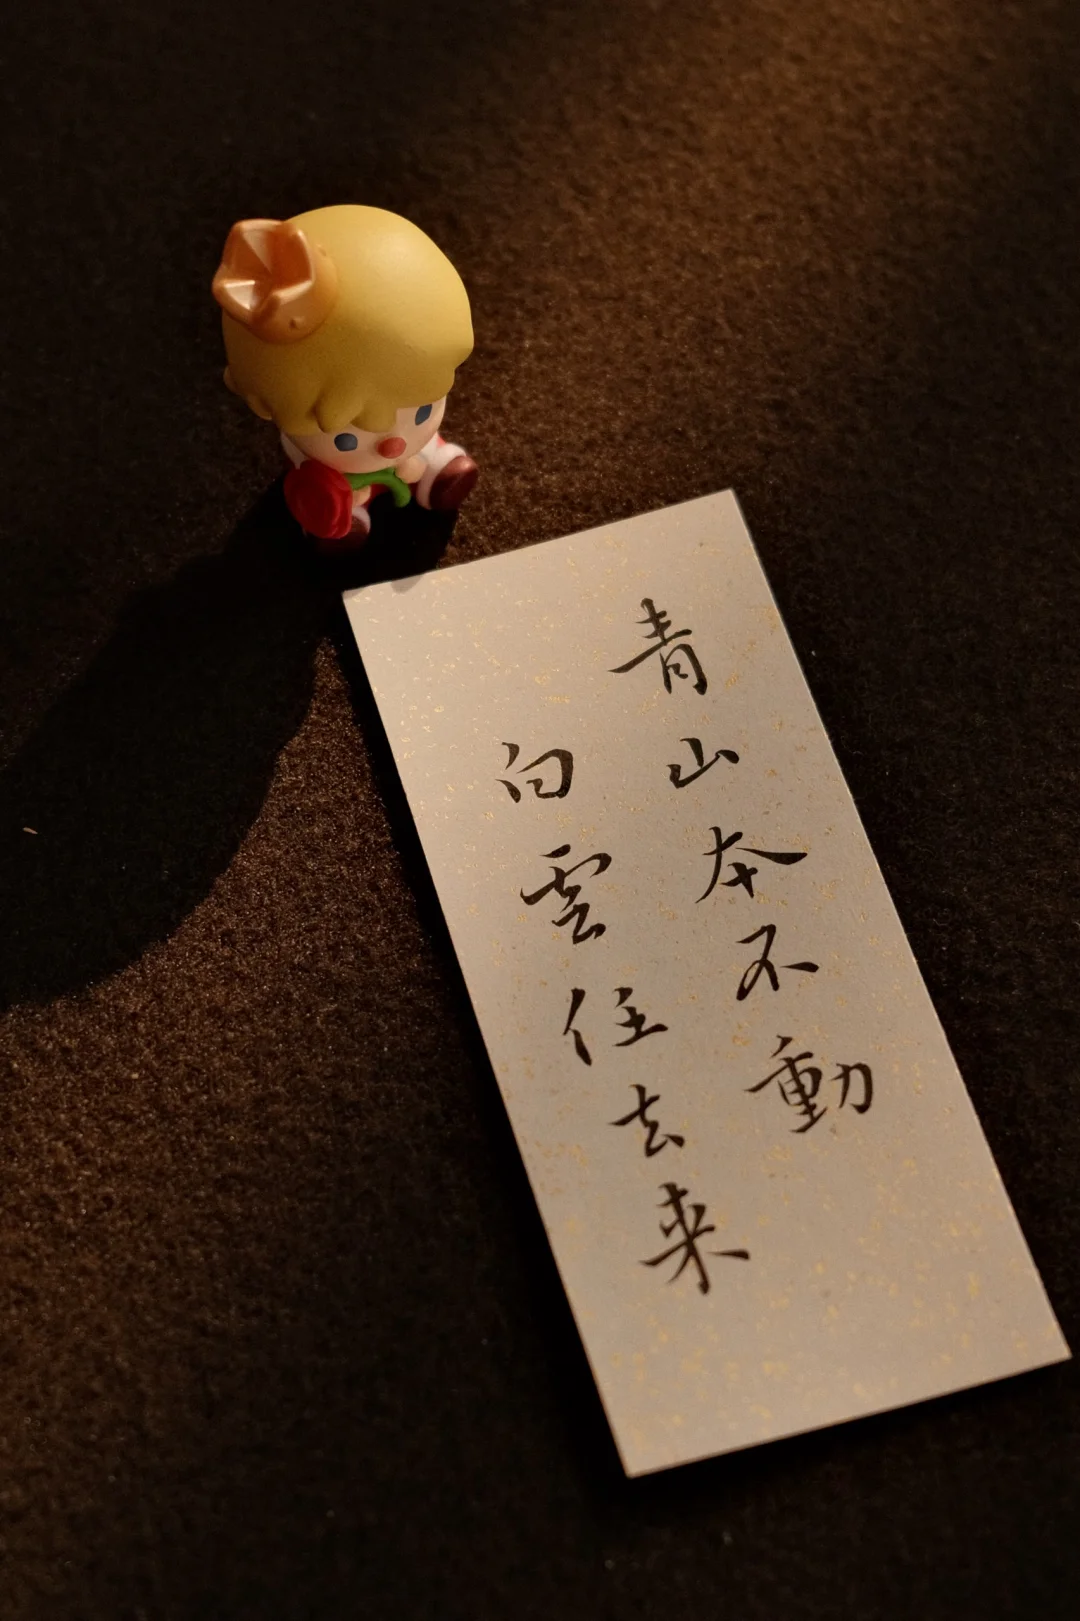 青山本不動
白雲任去来